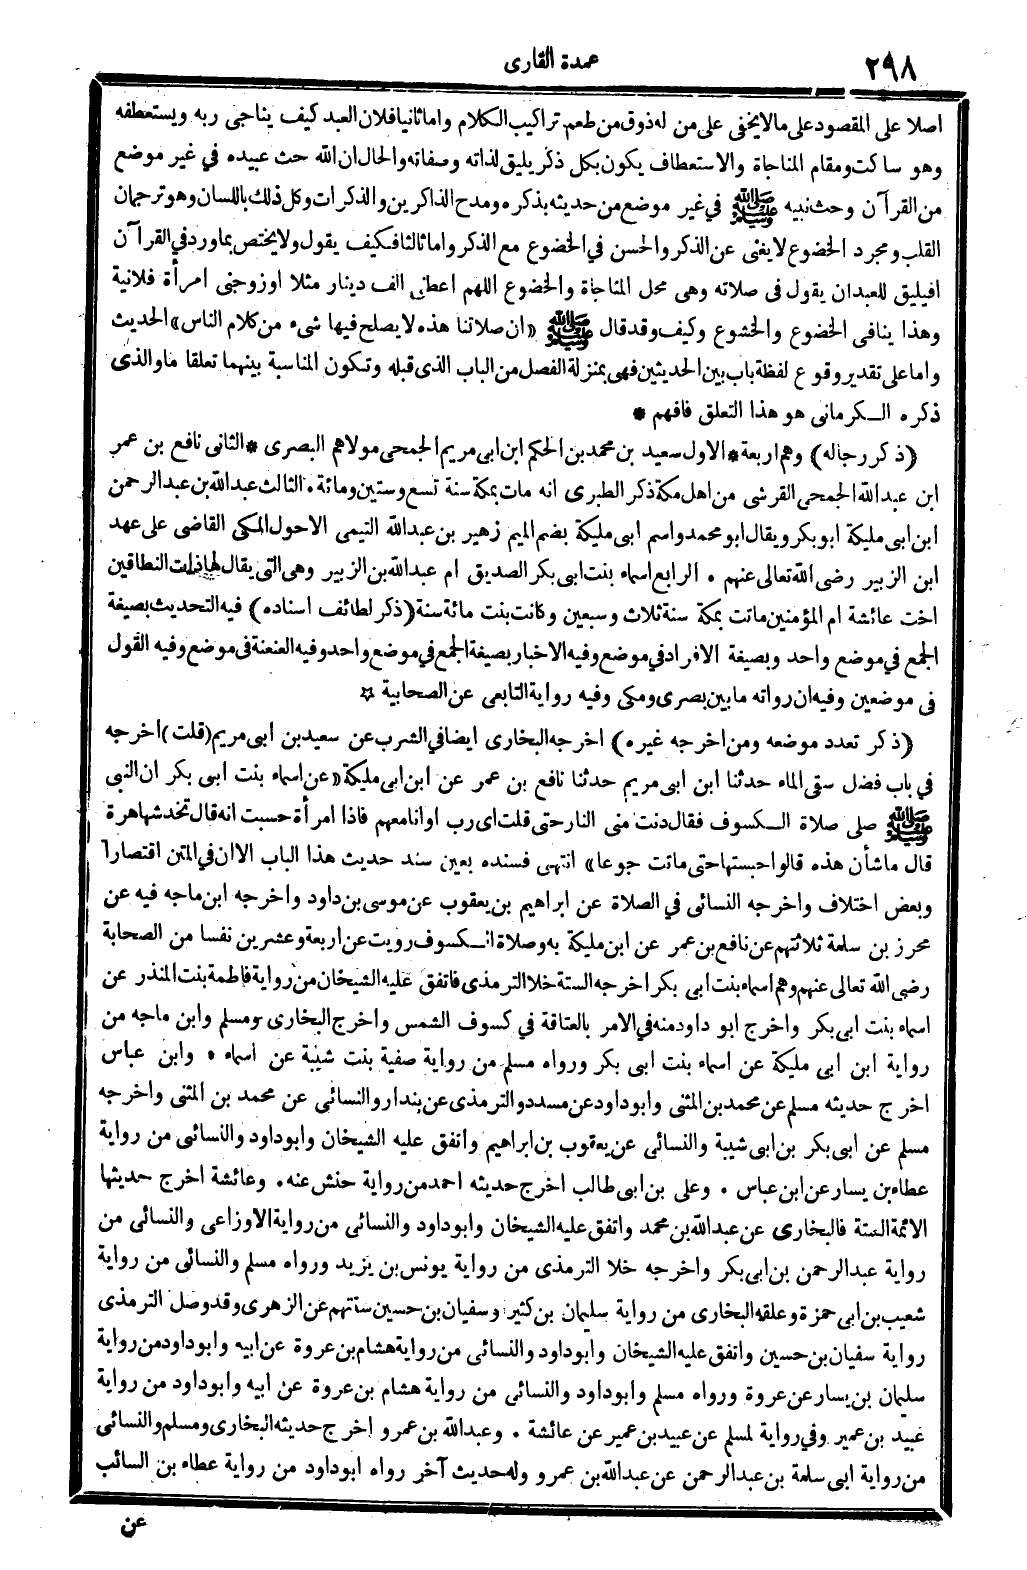 ٢٩٨
عمدة القارى
اصلا على المقصود على مالا يخفى على من له ذوق من طعم تراكيب الكلام واما ثانيا فلان العبد كيف يناجى ربه ويستعطفه
وهو ساكت ومقام المناجاة والاستعطاف يكون بكل ذكر يليق لذاته وصفاته والحال ان الله حث عبيده في غير موضع
من القرآن وحث نبيه ﷺ في غير موضع من حديثه بذكره ومدح الذاكرين والذكرات وكل ذلك باللسان وهو ترجمان
القلب ومجرد الخضوع لا يغنى عن الذكر والحسن في الخضوع مع الذكر واما ثالثا فكيف يقول ولا يختص بما ورد في القرآن
افيليق للعبد ان يقول فى صلاته وهى محل المناجاة والخضوع اللهم اعطنى الف دينار مثلا اوزوجنى امرأة فلانية
وهذا ينافى الخضوع والخشوع وكيف وقد قال ﷺ «ان صلاتنا هذه لا يصلح فيها شىء من كلام الناس» الحديث
واما على تقدير وقوع لفظة باب بين الحديثين فهى بمنزلة الفصل من الباب الذى قبله وتكون المناسبة بينهما تعلقا ما والذى
ذكره الكرمانى هو هذا التعلق فافهم *
(ذكر رجاله) وهم اربعة * الاول سعيد بن محمد بن الحكم ابن ابى مريم الجمحى مولاهم البصرى * الثانى نافع بن عمر
ابن عبدالله الجمحى القرشى من اهل مكة ذكر الطبرى انه مات بمكة سنة تسع وستين ومائة . الثالث عبدالله بن عبدالرحمن
ابن ابى مليكة ابو بكر ويقال ابو محمد واسم ابى مليكة بضم الميم زهير بن عبدالله التيمى الاحول المكى القاضى على عهد
ابن الزبير رضى الله تعالى عنهم . الرابع اسماء بنت ابى بكر الصديق ام عبدالله بن الزبير وهى التى يقال لها ذات النطاقين
اخت عائشة ام المؤمنين ماتت بمكة سنة ثلاث وسبعين وكانت بنت مائة سنة (ذكر لطائف اسناده) فيه التحديث بصيغة
الجمع في موضع واحد وبصيغة الافراد في موضع وفيه الاخبار بصيغة الجمع في موضع واحد وفيه العنعنة فى موضع وفيه القول
فى موضعين وفيه ان رواته ما بين بصرى ومكى وفيه رواية التابعى عن الصحابية ☆
(ذكر تعدد موضعه ومن اخرجه غيره) اخرجه البخارى ايضا في الشرب عن سعيد بن ابى مريم (قلت) اخرجه
في باب فضل سقى الماء حدثنا ابن ابى مريم حدثنا نافع بن عمر عن ابن ابى مليكة «عن اسماء بنت ابى بكر ان النبى
ﷺ صلى صلاة الكسوف فقال دنت منى النار حتى قلت اى رب اوانا معهم فاذا امرأة حسبت انه قال تخدشها هرة
قال ما شأن هذه قالوا حبستها حتى ماتت جوعا» انتهى فسنده بعين سند حديث هذا الباب الا ان في المتن اقتصارا
وبعض اختلاف واخرجه النسائى في الصلاة عن ابراهيم بن يعقوب عن موسى بن داود واخرجه ابن ماجه فيه عن
محرز بن سلمة ثلاثتهم عن نافع بن عمر عن ابن مليكة به وصلاة الكسوف رويت عن اربعة وعشرين نفسا من الصحابة
رضى الله تعالى عنهم وهم اسماء بنت ابى بكر اخرجه الستة خلا الترمذى فاتفق عليه الشيخان من رواية فاطمة بنت المنذر عن
اسماء بنت ابى بكر واخرج ابو داود منه في الامر بالعتاقة في كسوف الشمس واخرج البخارى ومسلم وابن ماجه من
رواية ابن ابى مليكة عن اسماء بنت ابى بكر ورواه مسلم من رواية صفية بنت شيبة عن اسماء . وابن عباس
اخرج حديثه مسلم عن محمد بن المثنى وابو داود عن مسدد والترمذى عن بندار والنسائى عن محمد بن المثنى واخرجه
مسلم عن ابى بكر بن ابى شيبة والنسائى عن يعقوب بن ابراهيم واتفق عليه الشيخان وابو داود والنسائى من رواية
عطاء بن يسار عن ابن عباس . وعلى بن ابى طالب اخرج حديثه احمد من رواية حنش عنه . وعائشة اخرج حديثها
الائمة الستة فالبخارى عن عبدالله بن محمد واتفق عليه الشيخان وابو داود والنسائى من رواية الاوزاعى والنسائى من
رواية عبدالرحمن بن ابى بكر واخرجه خلا الترمذى من رواية يونس بن يزيد ورواه مسلم والنسائى من رواية
شعيب بن ابى حمزة وعلقه البخارى من رواية سليمان بن كثير وسفيان بن حسين ستتهم عن الزهرى وقد وصل الترمذى
رواية سفيان بن حسين واتفق عليه الشيخان وابو داود والنسائى من رواية هشام بن عروة عن ابيه وابو داود من رواية
سليمان بن يسار عن عروة ورواه مسلم وابو داود والنسائى من رواية هشام بن عروة عن ابيه وابو داود من رواية
عبيد بن عمير وفي رواية لمسلم عن عبيد بن عمير عن عائشة . وعبدالله بن عمرو اخرج حديثه البخارى ومسلم والنسائى
من رواية ابى سلمة بن عبدالرحمن عن عبدالله بن عمرو وله حديث آخر رواه ابو داود من رواية عطاء بن السائب
عن